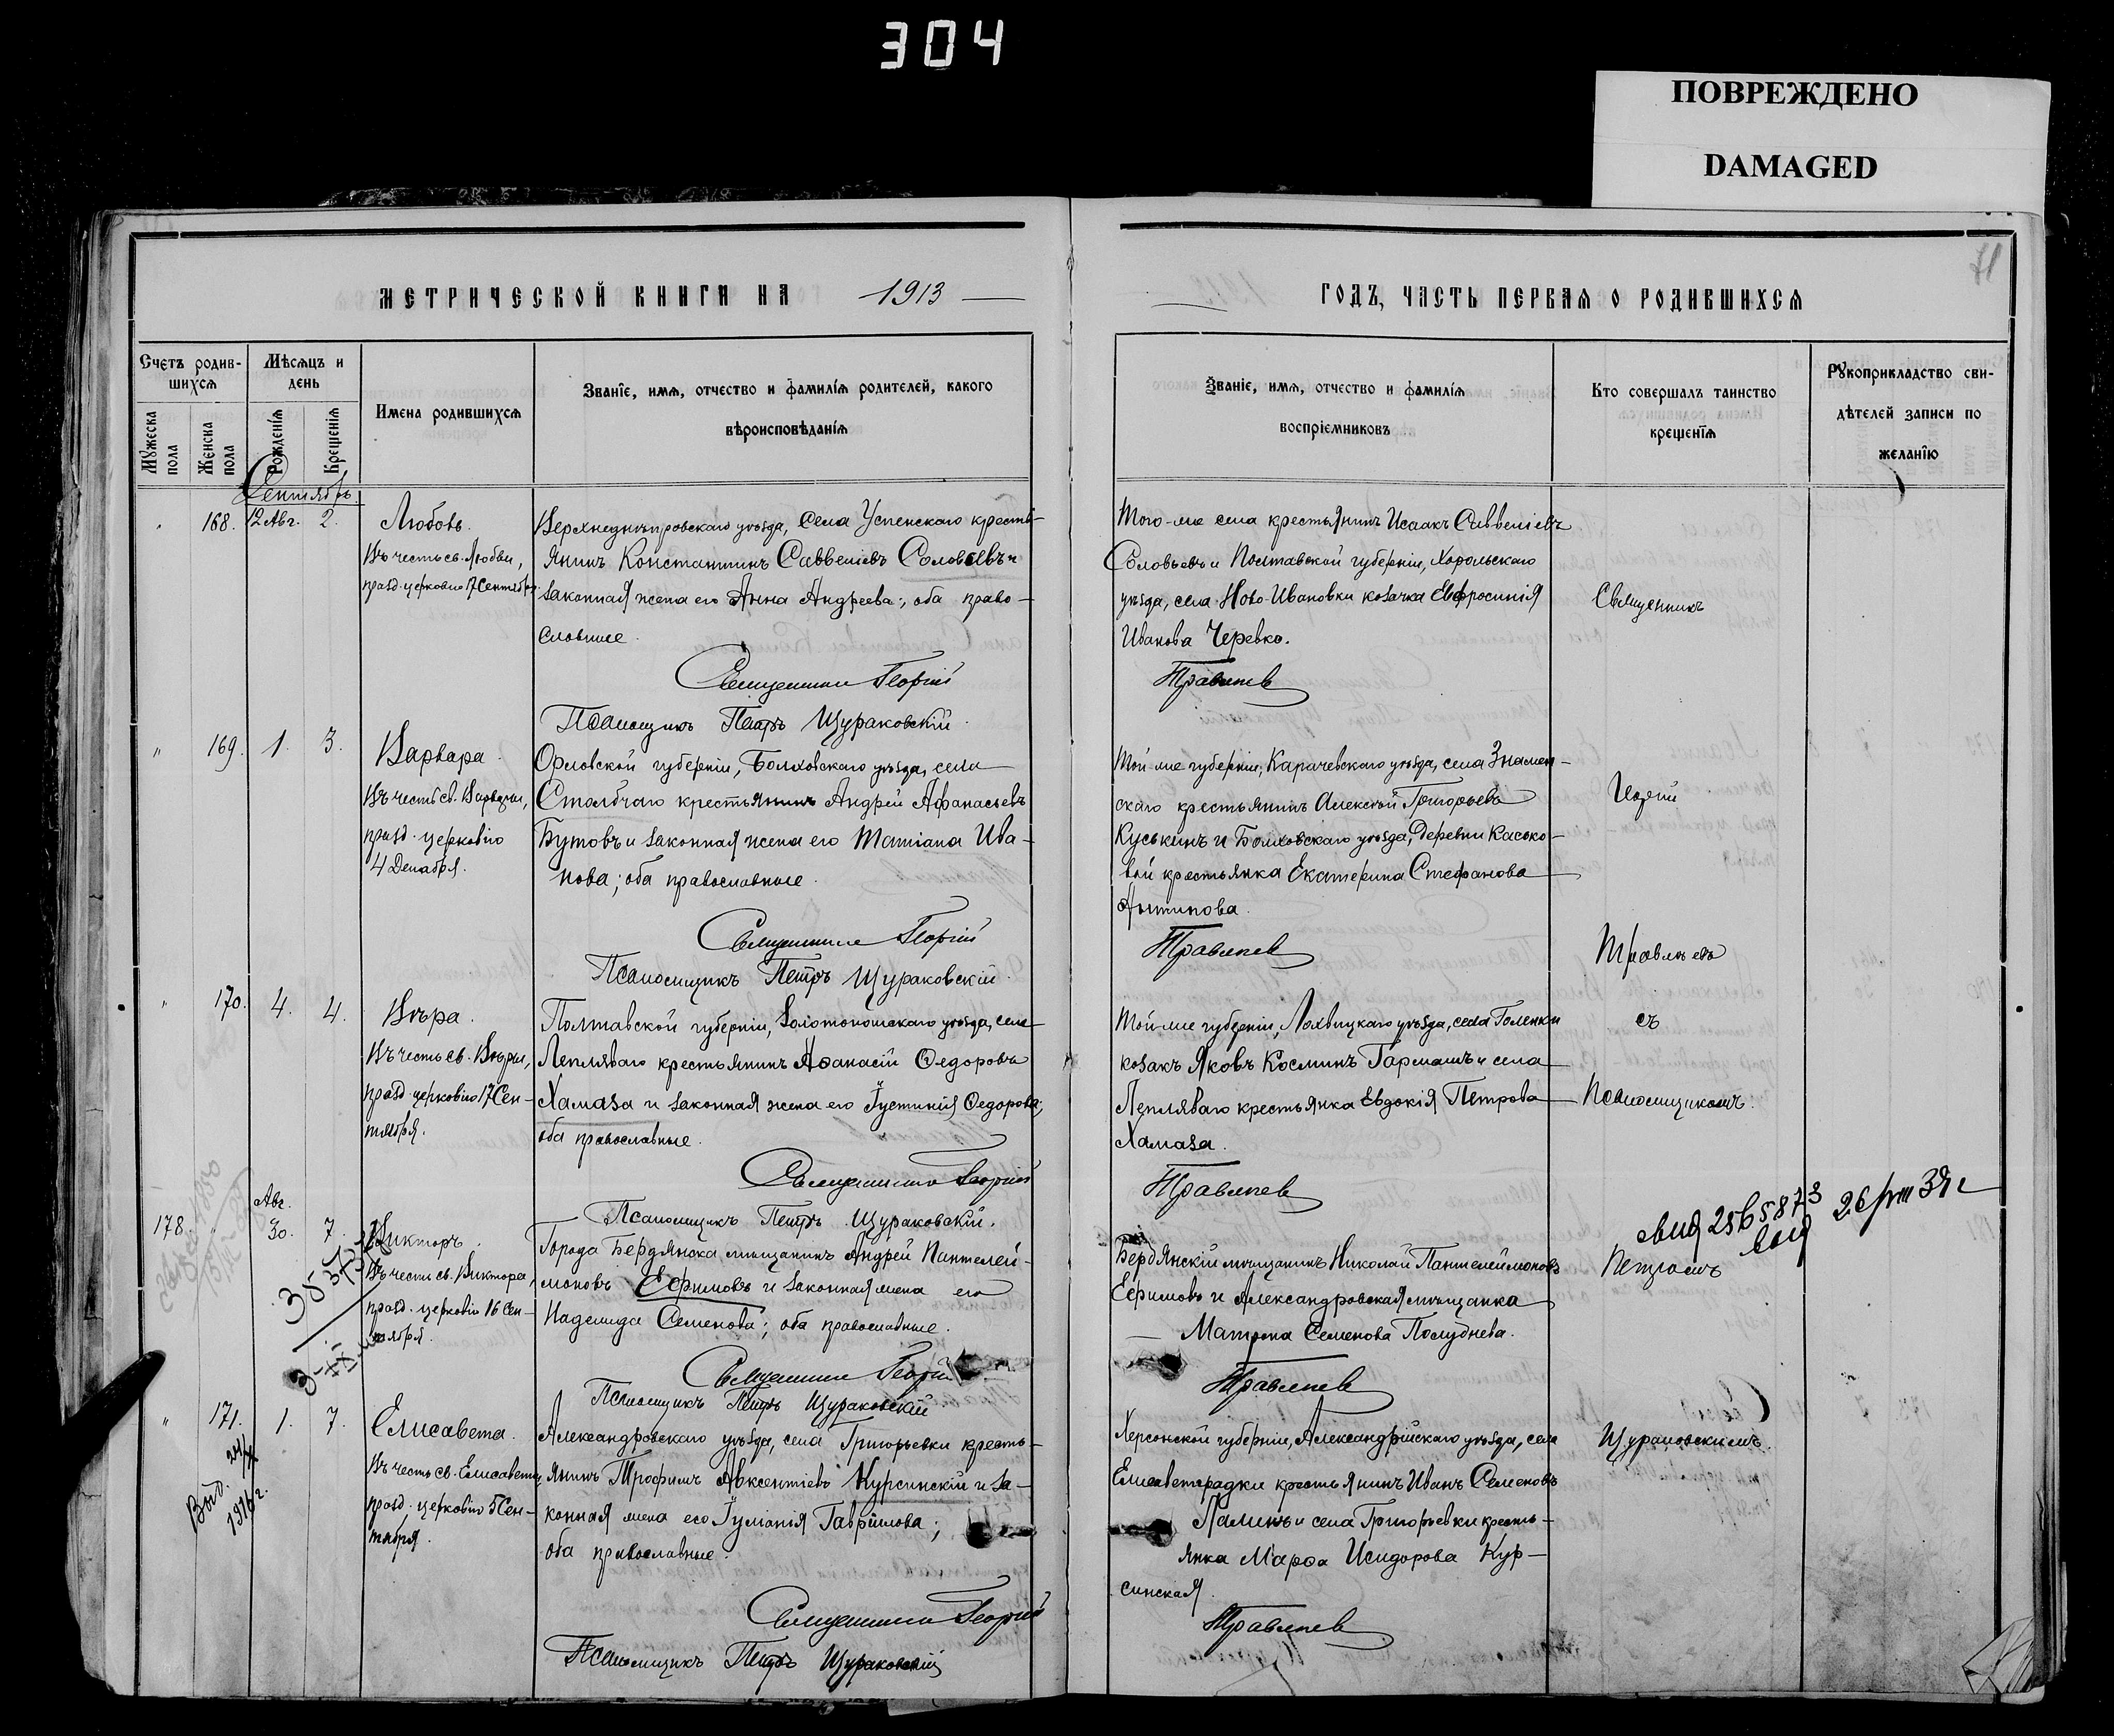 304
ПОВРЕЖДЕНО
DAMAGED
71
МЕТРИЧЕСКОЙ КНИГИ НА 1913
ГОДЪ, ЧАСТЬ ПЕРВАЯ О РОДИВШИХСЯ
Счетъ родив-
шихся
Мужеска
пола
Женска
пола
Мѣсяцъ и
день
Рожденія
Крещенія
Имена родившихся
Званіе, имя, отчество и фамилія родителей, какого
вѣроисповѣданія
Званіе, имя, отчество и фамилія
воспріемниковъ
Кто совершалъ таинство
крещенія
Рукоприкладство сви-
дѣтелей записи по
желанію
Сентябрь.
" 168. 12 Авг. 2.
Любовь.
Въ честь св. Любви,
празд. церковію 17 Сентября
Верхнеднѣпровскаго уѣзда, села Успенскаго кресть-
янинъ Константинъ Саввеліевъ Соловьевъ и
законная жена его Анна Андреева; оба право-
славные.
Священникъ Георгій
Псаломщикъ Петръ Щураковскій.
Того-же села крестьянинъ Исаакъ Саввеліевъ
Соловьевъ и Полтавской губерніи, Хорольскаго
уѣзда, села Ново-Ивановки козачка Евфросинія
Иванова Черевко.
Правлевъ
Священникъ
" 169. 1. 3.
Варвара.
Въ честь св. Варвары,
празд. церковію
4 Декабря.
Орловской губерніи, Болховскаго уѣзда, села
Столбчаго крестьянинъ Андрей Афанасьевъ
Бутовъ и законная жена его Татіана Ива-
нова; оба православные.
Священникъ Георгій
Псаломщикъ Петръ Щураковскій.
Той-же губерніи, Карачевскаго уѣзда, села Знамен-
скаго крестьянинъ Алексѣй Григорьевъ
Куськинъ и Болховскаго уѣзда, деревни Касько-
вой крестьянка Екатерина Стефанова
Антипова.
Правлевъ
Георгій
Правлевъ
" 170. 4. 4.
Вѣра.
Въ честь св. Вѣры,
празд. церковію 17 Сен-
тября.
Полтавской губерніи, Золотоношскаго уѣзда, села
Лепляваго крестьянинъ Аѳанасій Ѳедоровъ
Хамаза и законная жена его Іустинія Ѳедорова;
оба православные.
Священникъ Георгій
Псаломщикъ Петръ Щураковскій.
Той-же губерніи, Лохвицкаго уѣзда, села Голенки
козакъ Яковъ Косминъ Гармашъ и села
Лепляваго крестьянка Евдокія Петрова
Хамаза.
Правлевъ
съ
Псаломщикомъ.
178. " Авг. 30. 7.
Викторъ.
Въ честь св. Виктора,
празд. церковію 16 Сен-
тября.
Города Бердянска мѣщанинъ Андрей Пантелей-
моновъ Ефимовъ и законная жена его
Надежда Семенова; оба православные.
Священникъ Георгій
Псаломщикъ Петръ Щураковскій.
Бердянскій мѣщанинъ Николай Пантелеймоновъ
Ефимовъ и Александровская мѣщанка
Матрона Семенова Полуднева.
Правлевъ
Петромъ
" 171. 1. 7.
Выд.
1916 г.
Елисавета.
Въ честь св. Елисаветы,
празд. церковію 5 Сен-
тября.
Александровскаго уѣзда, села Григорьевки кресть-
янинъ Трофимъ Авксентіевъ Курсинскій и за-
конная жена его Іуліанія Гавріилова;
оба православные.
Священникъ Георгій
Псаломщикъ Петръ Щураковскій
Херсонской губерніи, Александрійскаго уѣзда, села
Елисаветградки крестьянинъ Иванъ Семеновъ
Лалинъ и села Григорьевки кресть-
янка Марѳа Исидорова Кур-
синская.
Правлевъ
Щураковскимъ.